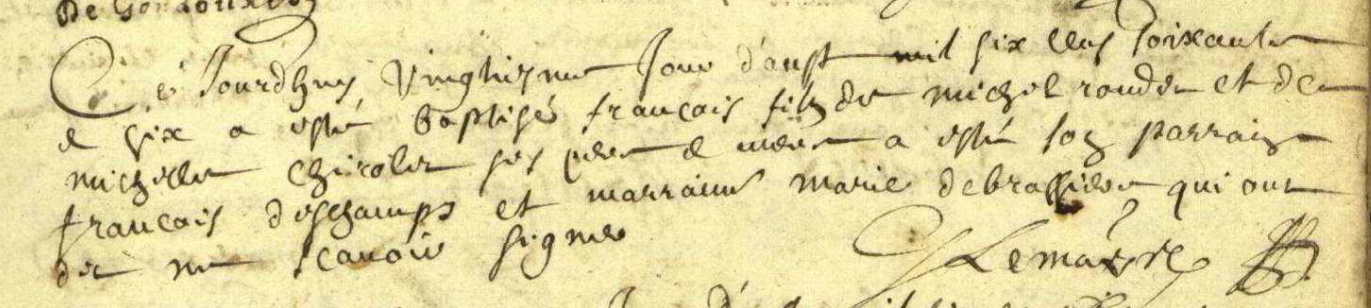 Ce Jourdhuy vinghiesme Jour d'aust mil six cens soixante
& six a esté baptisé francais filz de michel rondet et de
michelle chirolet ses pere & mere a esté son parrain
francais deschamps et marraine marie debrassier qui ont
dit ne scavoir signer
Lemaistre